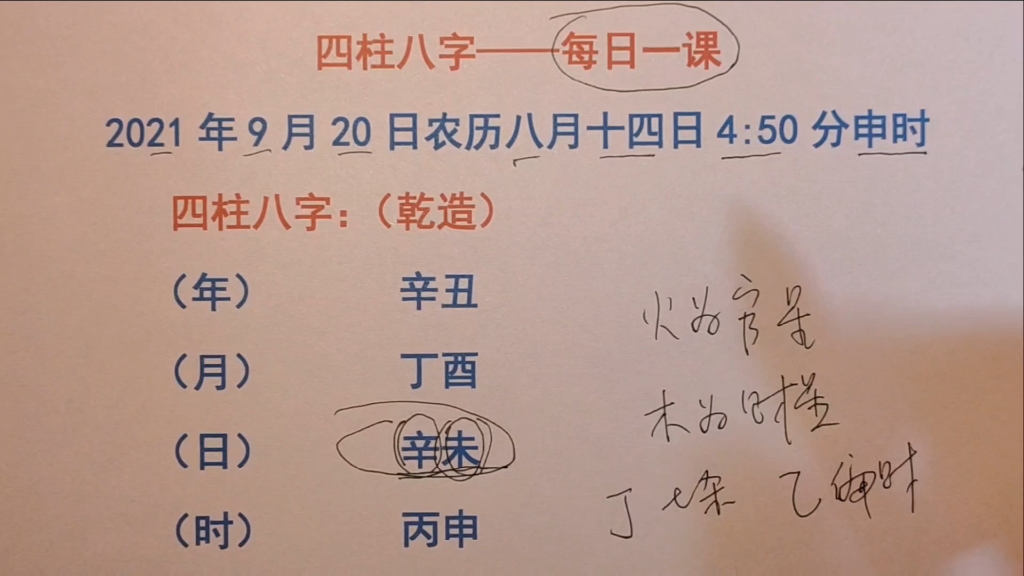 四柱八字——每日一课
2021年9月20日农历八月十四日4:50分申时
四柱八字：（乾造）
（年） 辛丑
（月） 丁酉
（日） 辛未
（时） 丙申
火为官星
木为财星
丁七杀 乙偏财